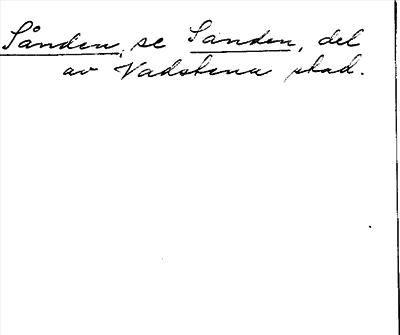 Sånden, se Sanden, del
av Vadstena stad.